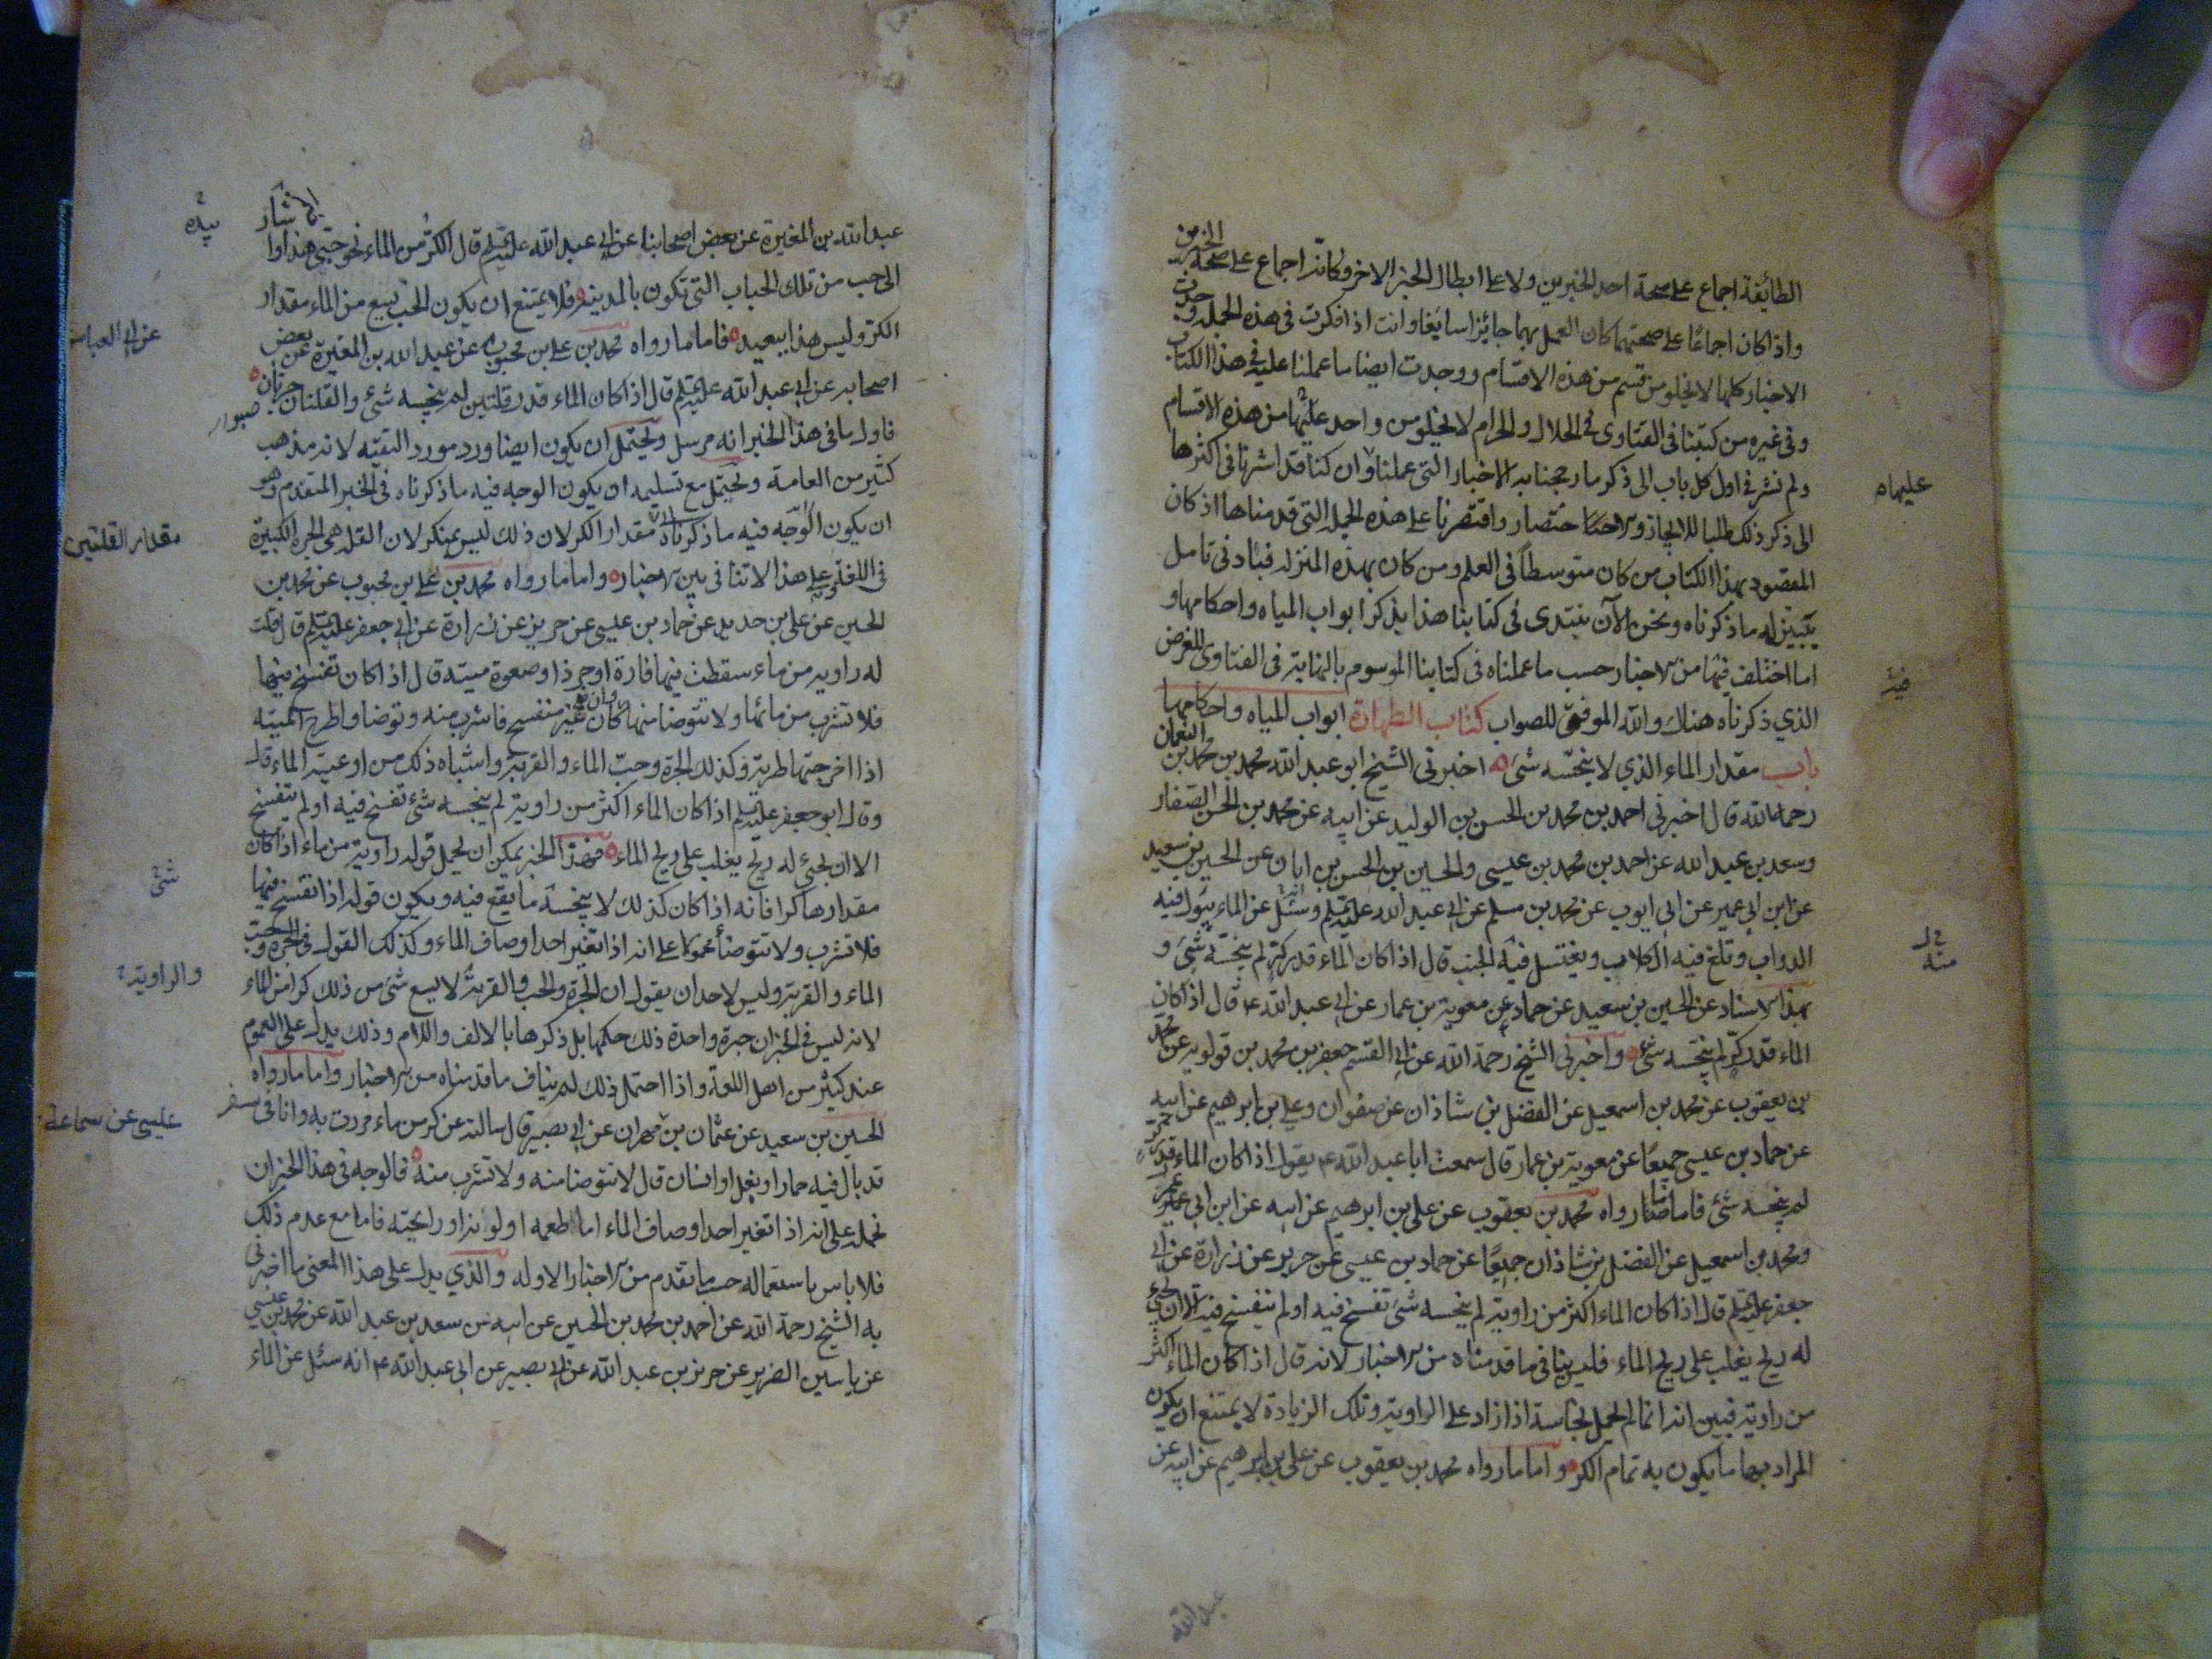 الطائفة اجماع على صحة احد الخبرين ولا على ابطال الخبر الاخر فكانه اجماع على صحة الخبرين
واذا كان اجماعا على صحتهما كان العمل بهما جائزا سايغا وانت اذا فكرت فى هذه الجملة وجدت
الاخبار كلها لا تخلو من قسم من هذه الاقسام ووجدت ايضا ما عملنا عليه فى هذا الكتاب
وفى غيره من كتبنا فى الفتاوى فى الحلال والحرام لا يخلو من واحد من هذه الاقسام
ولم نشر فى اول كل باب الى ذكر ما رجحنا به الاخبار التى عملنا وان كنا قد اشرنا فى اكثرها
الى ذكر ذلك طلبا للايجاز والاختصار واقتصرنا على هذه الجملة التى قدمناها اذ كان
المقصود بهذا الكتاب من كان متوسطا فى العلم ومن كان بهذه المنزلة فبادنى تامل
يتبين له ما ذكرناه ونحن الآن نبتدى فى كتابنا هذا بذكر ابواب المياه واحكامها و
اما اختلف فيها من الاخبار حسب ما عملناه فى كتابنا الموسوم بالنهاية فى الفتاوى للغرض
الذي ذكرناه هناك والله الموفق للصواب كتاب الطهارة ابواب المياه واحكامها
باب مقدار الماء الذي لا ينجسه شئ اخبرنى الشيخ ابو عبد الله محمد بن محمد بن النعمان
رحمه الله قال اخبرنى احمد بن محمد بن الحسن بن الوليد عن ابيه عن محمد بن الحسن الصفار
وسعد بن عبد الله عن احمد بن محمد بن عيسى والحسين بن الحسن بن ابان عن الحسين بن سعيد
عن ابن ابى عمير عن ابى ايوب عن محمد بن مسلم عن ابى عبد الله عليه السلم وسئل عن الماء يبول فيه
الدواب وتلغ فيه الكلاب ويغتسل فيه الجنب قال اذا كان الماء قدر كر لم ينجسه شئ و
بهذا الاسناد عن الحسين بن سعيد عن حماد عن معوية بن عمار عن ابى عبد الله ع قال اذا كان
الماء قدر كر لم ينجسه شئ واخبرنى الشيخ رحمة الله عن ابى القسم جعفر بن محمد بن قولويه عن محمد
بن يعقوب عن محمد بن اسمعيل عن الفضل بن شاذان عن صفوان وعلى بن ابرهيم عن ابيه
عن حماد بن عيسى جميعا عن معوية بن عمار قال سمعت ابا عبد الله ع يقول اذا كان الماء قدر كر
لم ينجسه شئ فاما ما رواه محمد بن يعقوب عن على بن ابرهيم عن ابيه عن ابن ابى عمير
ومحمد بن اسمعيل عن الفضل بن شاذان جميعا عن حماد بن عيسى عن حريز عن زرارة عن ابى
جعفر عليه السلم قال اذا كان الماء اكثر من راوية لم ينجسه شئ تفسخ فيه او لم يتفسخ فيه الا ان يجئ
له ريح يغلب على ريح الماء فليس ينافى ما قدمناه من الاخبار لانه قال اذا كان الماء اكثر
من راوية فبين انه انما لم يحمل نجاسة اذا زاد على الراوية وتلك الزيادة لا يمتنع ان يكون
المراد بها ما يكون به تمام الكر واما ما رواه محمد بن يعقوب عن على بن ابرهيم عن ابيه عن
عليهما
منه
عبد الله
عبد الله بن المغيرة عن بعض اصحابنا عن ابى عبد الله عليه السلم قال الكر من الماء نحو حبى هذا واشار
الى حب من تلك الحباب التى تكون بالمدينة فلا يمتنع ان يكون الحب يسع من الماء مقدار
الكر وليس هذا ببعيد فاما ما رواه محمد بن على بن محبوب عن عبد الله بن المغيرة عن بعض
اصحابه عن ابى عبد الله عليه السلم قال اذا كان الماء قدر قلتين لم ينجسه شئ والقلتان جرتان
فاول ما فى هذا الخبر انه مرسل ويحتمل ان يكون ايضا ورد مورد التقيه لانه مذهب
كثير من العامة ويحتمل مع تسليمه ان يكون الوجه فيه ما ذكرناه فى الخبر المتقدم وهو
ان يكون الوجه فيه ما ذكرناه مقدار الكر لان ذلك ليس بمنكر لان القلة هى الجرة الكبيرة
فى اللغة وعلى هذا لا تنافى بين الاخبار واما ما رواه محمد بن على بن محبوب عن محمد بن
الحسين عن على بن حديد عن حماد بن عيسى عن حريز عن زرارة عن ابى جعفر عليه السلم قال قلت
له راوية من ماء سقطت فيها فارة او جرذ او صعوة ميتة قال اذا كان تفسخ فيها
فلا تشرب من مائها ولا تتوضا منها وان كان غير متفسخ فاشرب منه وتوضا واطرح الميته
اذا اخرجتها طرية وكذلك الجرة وحب الماء والقربة واشباه ذلك من اوعية الماء قال
وقال ابو جعفر عليه السلم اذا كان الماء اكثر من راوية لم ينجسه شئ تفسخ فيه او لم يتفسخ
الا ان يجئ له ريح يغلب على ريح الماء فهذا الخبر يمكن ان يحمل قوله راوية من ماء اذا كان
مقدارها كرا فانه اذا كان كذلك لا ينجسه ما يقع فيه ويكون قوله اذا تفسخ فيها
فلا تشرب ولا تتوضأ محمولا على انه اذا تغير احد اوصاف الماء وكذلك القول فى الجرة وحب
الماء والقربة وليس لاحد ان يقول ان الجرة والحب والقربة لا يسع شئ من ذلك كرا من الماء
لانه ليس فى الخبر ان جرة واحدة ذلك حكمها بل ذكرها بالالف واللام وذلك يدل على العموم
عند كثير من اهل اللغة واذا احتمل ذلك لم يناف ما قدمناه من الاخبار واما ما رواه
الحسين بن سعيد عن عثمان بن مهران عن ابى بصير قال سالته عن كر من ماء مررت به وانا فى سفر
قد بال فيه حمار او بغل او انسان قال لا تتوضا منه ولا تشرب منه فالوجه فى هذا الخبر ان
نحمله على انه اذا تغير احد اوصاف الماء اما طعمه او لونه او رايحته فاما مع عدم ذلك
فلا باس باستعماله حسب ما تقدم من الاخبار الاوله والذي يدل على هذا المعنى ما اخبرنى
به الشيخ رحمة الله عن احمد بن محمد بن الحسين عن ابيه عن سعد بن عبد الله عن محمد بن عيسى
عن ياسين الضرير عن حريز بن عبد الله عن ابى بصير عن ابى عبد الله ع انه سئل عن الماء
بيده
عن ابى العباس
مقدار القلتين
شئ
والراوية
عيسى عن سماعة